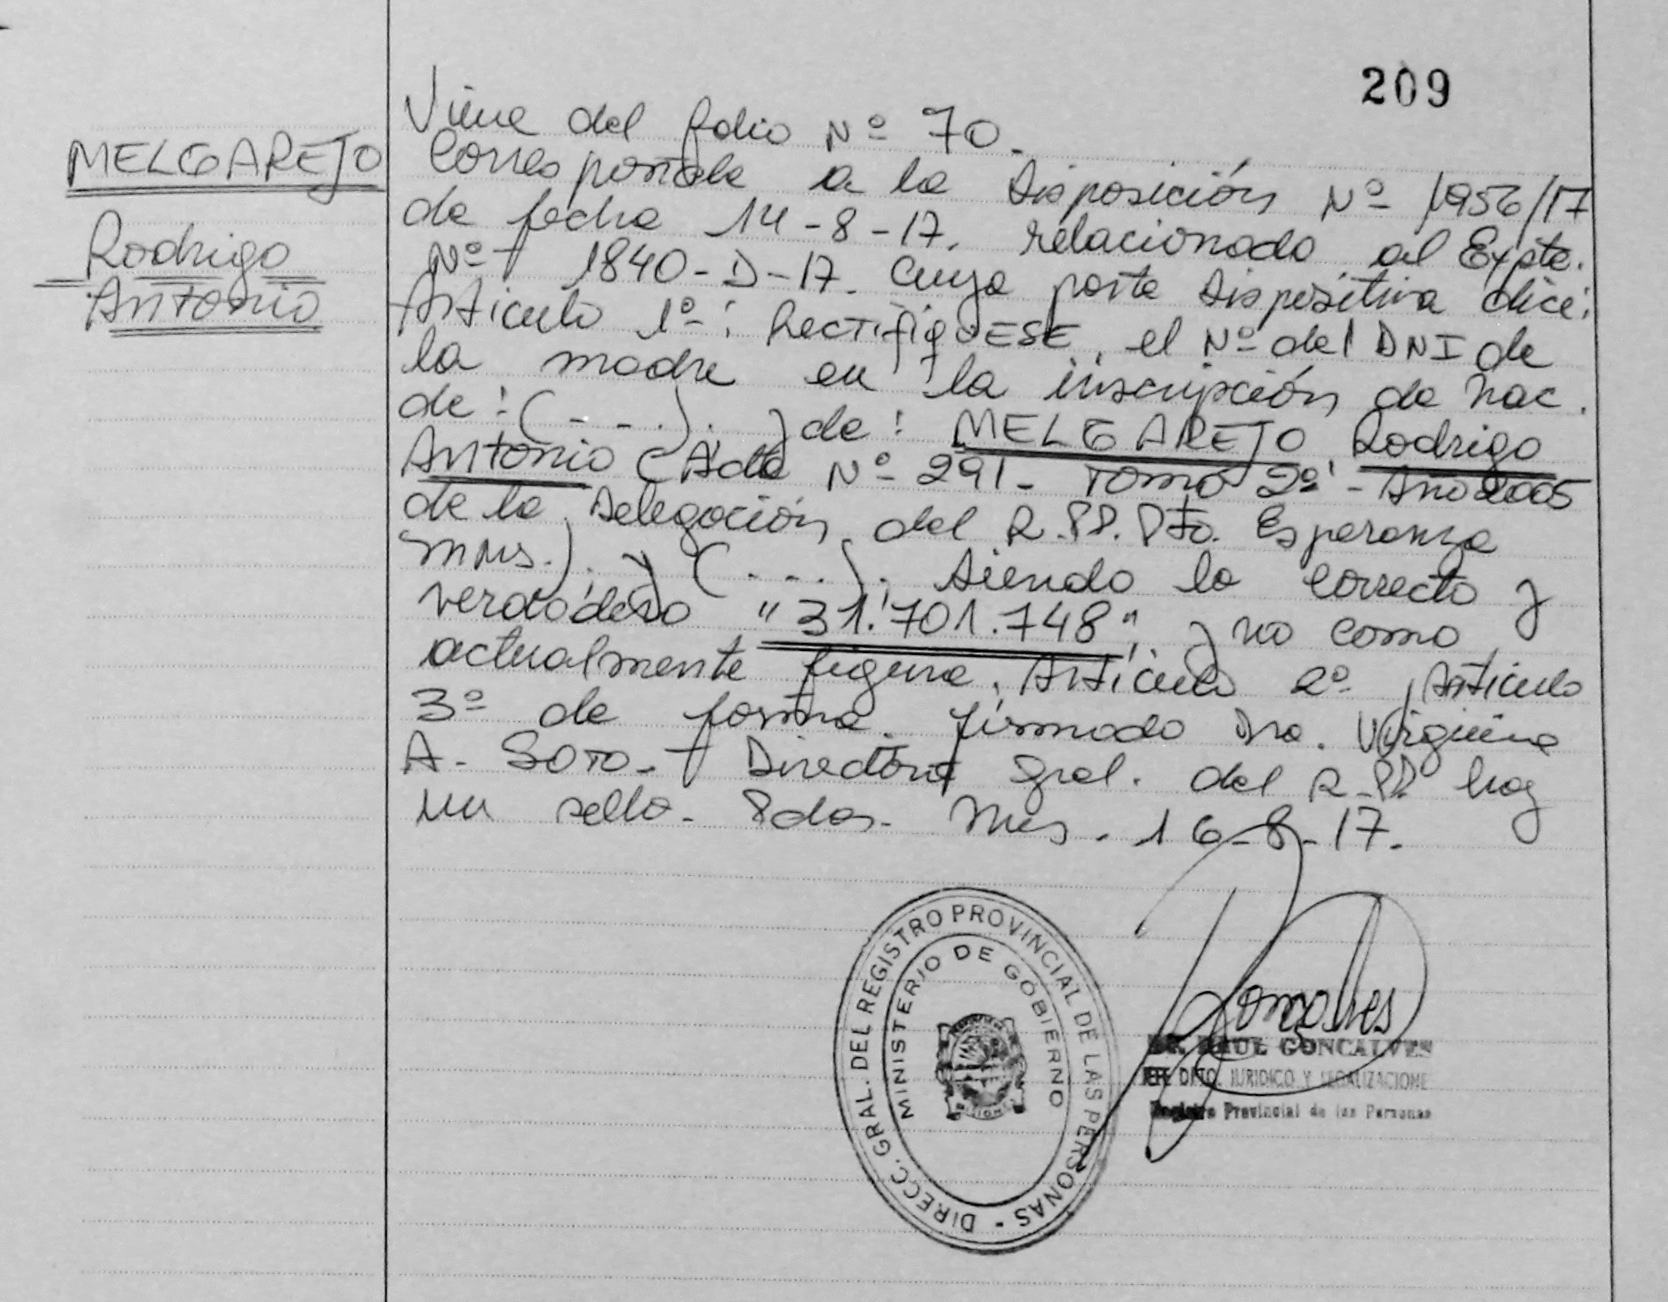 209
MELGAREJO
Rodrigo
Antonio
Viene del folio Nº 70.
Corresponde a la Disposición Nº 1956/17
de fecha 14-8-17. relacionado al Expte.
Nº 1840-D-17. Cuya parte Dispositiva dice:
Articulo 1º: RectifiQUESE, el Nº del DNI de
la madre en la inscripción de Nac.
de: (- - -). y de: MELGAREJO Rodrigo
Antonio (Acta Nº 291- Tomo 2º - Año 2005
de la Delegación del R.PP. Pto. Esperanza
Mnes.). y (- - - -). Siendo lo correcto y
verdadero "31.701.748", y no como
actualmente figura. Articulo 2º Articulo
3º de forma. firmado Dra. Virginia
A. Soto. Directora Gral. del R.PP. hay
un sello. Pdas. Mnes. 16-8-17.
DIRECC. GRAL. DEL REGISTRO PROVINCIAL DE LAS PERSONAS -
MINISTERIO DE GOBIERNO
MISIONES
Goncalves
DR. RAUL GONCALVES
JEFE DPTO. JURIDICO Y LEGALIZACIONE
Registro Provincial de las Personas